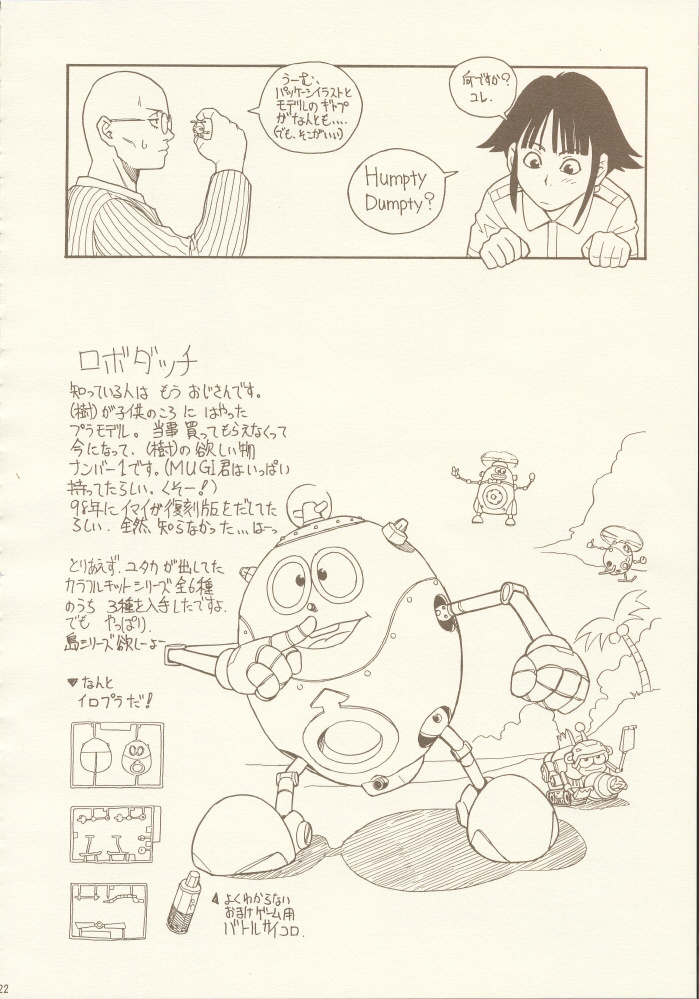 うーむ、
パッケージイラストと
モデルのギャップ
がなんとも....
(でも、そこがいい)
何ですか?
コレ.
Humpty
Dumpty?
ロボダッチ
知っている人は もう おじさんです。
(樹)が子供のころ に はやった
プラモデル。当時 買ってもらえなくって
今になって、(樹)の欲しい物
ナンバー1です。(MUGI君はいっぱい
持ってたらしい。くそー!)
98年にイマイが復刻版をだしてた
らしい. 全然、知らなかった...はーっ
とりあえず. ユタカ が出してた
カラフルキットシリーズ 全6種
のうち 3種を入手したですよ.
でも やっぱり.
島シリーズ欲しーよー
▼なんと
イロプラだ!
◀よくわからない
おまけゲーム用
バトルサイコロ.
22